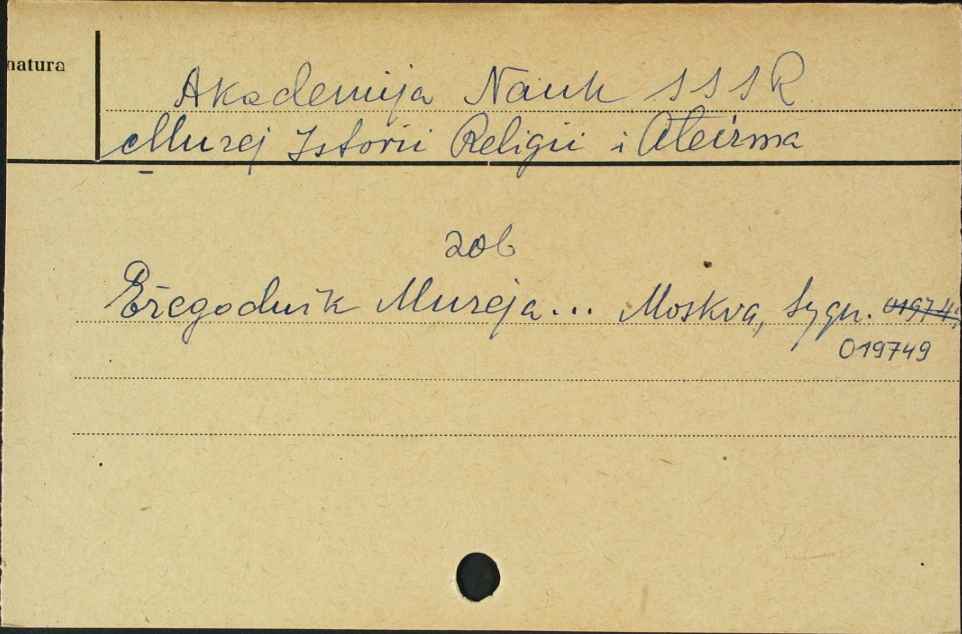 natura
Akademija Nauk SSSR
Muzej Istorii Religii i Ateizma
zob
Ežegodnik Muzeja... Moskva, Sygn. 01974
019749